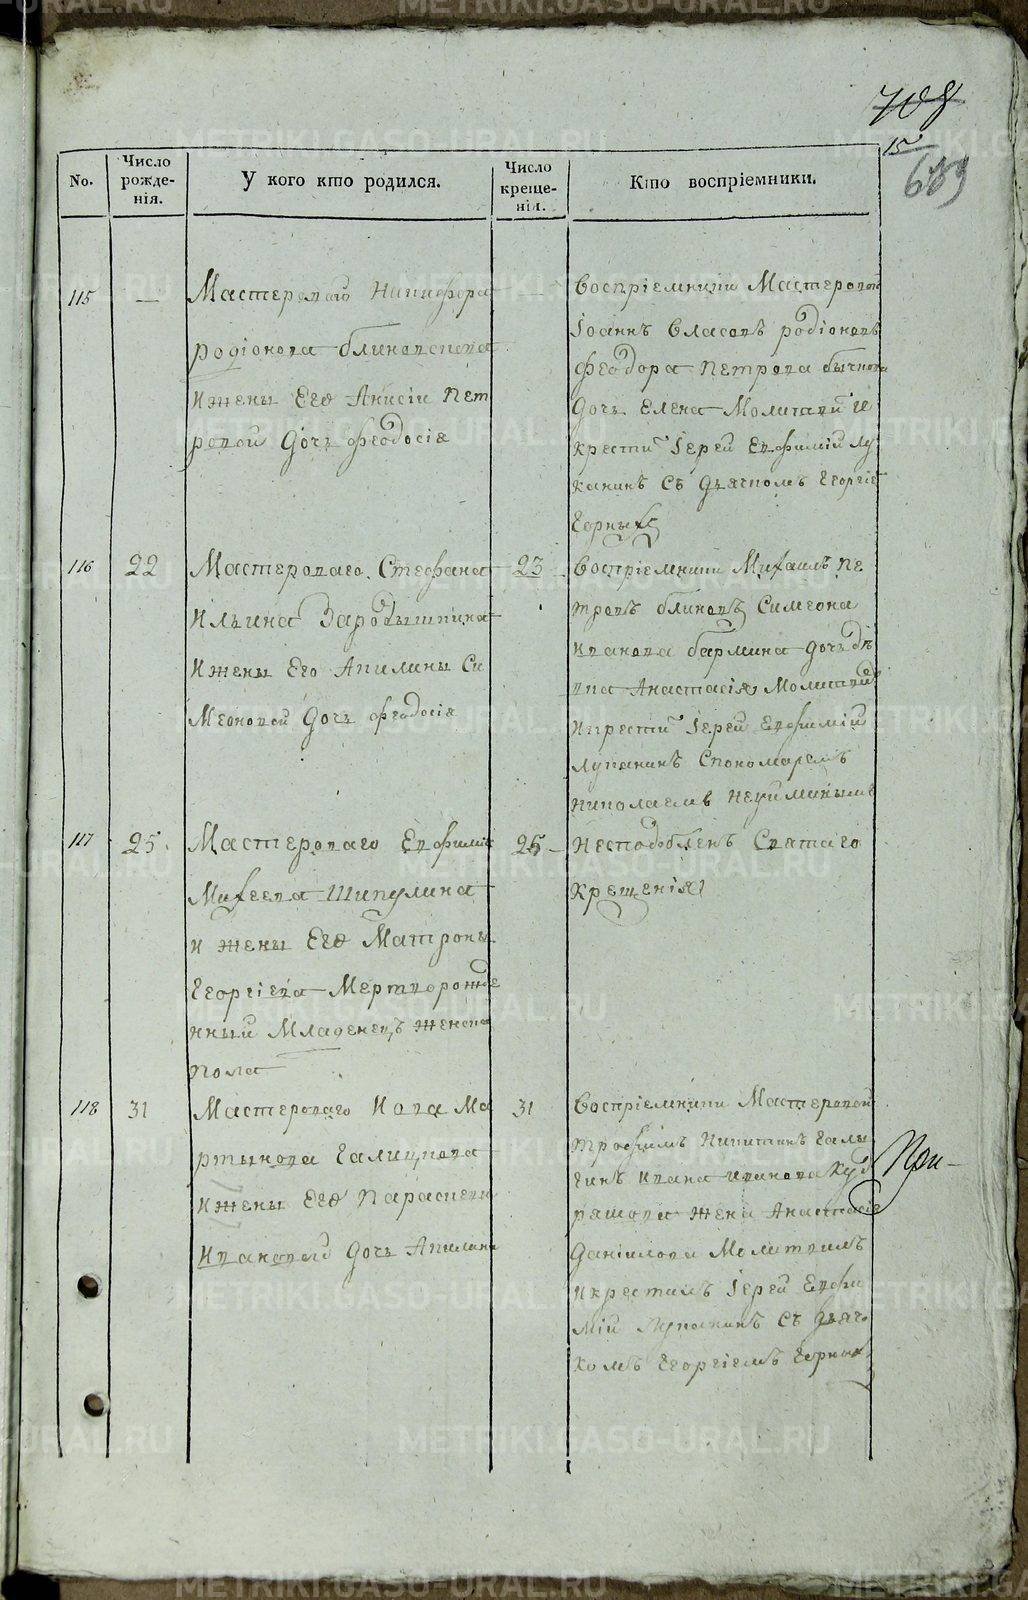 708
15
689
No.
Число рожде-нія.
У кого кто родился.
Число креще-нія.
Кто воспріемники.
115
—
Мастероваго Никифора
родіонова блиновскова
и жены Его Анисіи Пет
ровой Дочь феодосія
—
Воспріемники Мастеровой
Іоаннъ Власовъ родіоновъ
феодора Петрова бычкова
дочь Елена Молитви и
крести Іерей Евфимій Лу
канинъ Съ Дьячкомъ Георгіе
Горных
116
22
Мастероваго Стефана
Ильина Зародышкина
и жены Его Акилины Си
меоновой Дочь феодосія
23
Воспріемники Михаилъ Пе
тровъ блиновъ Симеона
Иванова бармина дочь дѣ
вка Анастасія Молитви
икрести Іерей Евфимій
Луканинъ Спономаремъ
Николаемъ
117
25
Мастероваго Евфимія
Михеева Шипулина
и жены Его Матроны
Георгіева Мертворожде
нный Младенецъ женска
пола
25
Несподобленъ Святаго
крещенія
118
31
Мастероваго Иова Ма
ртынова Галицкова
и жены Его Параскеви
Ивановой Дочь Акилина
31
Воспріемники Мастеровой
трофимъ Никитинъ Галы
гинъ Ивана Иванова Куд
ряшова жена Анастасія
Даніилова Молитвилъ
икрестилъ Іерей Евфи
мій Луканинъ Съ Дьяч
комъ Георгіемъ Горных
При-
METRIKI.GASO-URAL.RU